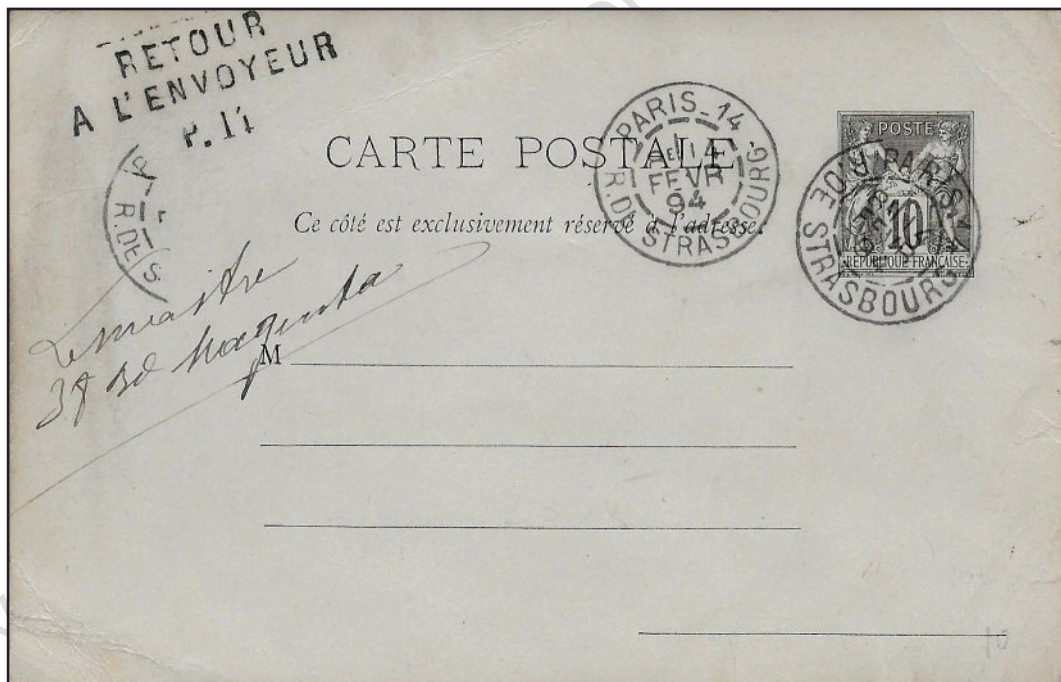 RETOUR
A L'ENVOYEUR
P. 14
CARTE POSTALE
Ce côté est exclusivement réservé à l'adresse.
PARIS_14
14
FEVR
94
R. DE STRASBOURG
POSTE
10
REPUBLIQUE FRANÇAISE
PARIS
R. DE STRASBOURG
R. DE S
Lemaitre
Bd Magenta
M
10